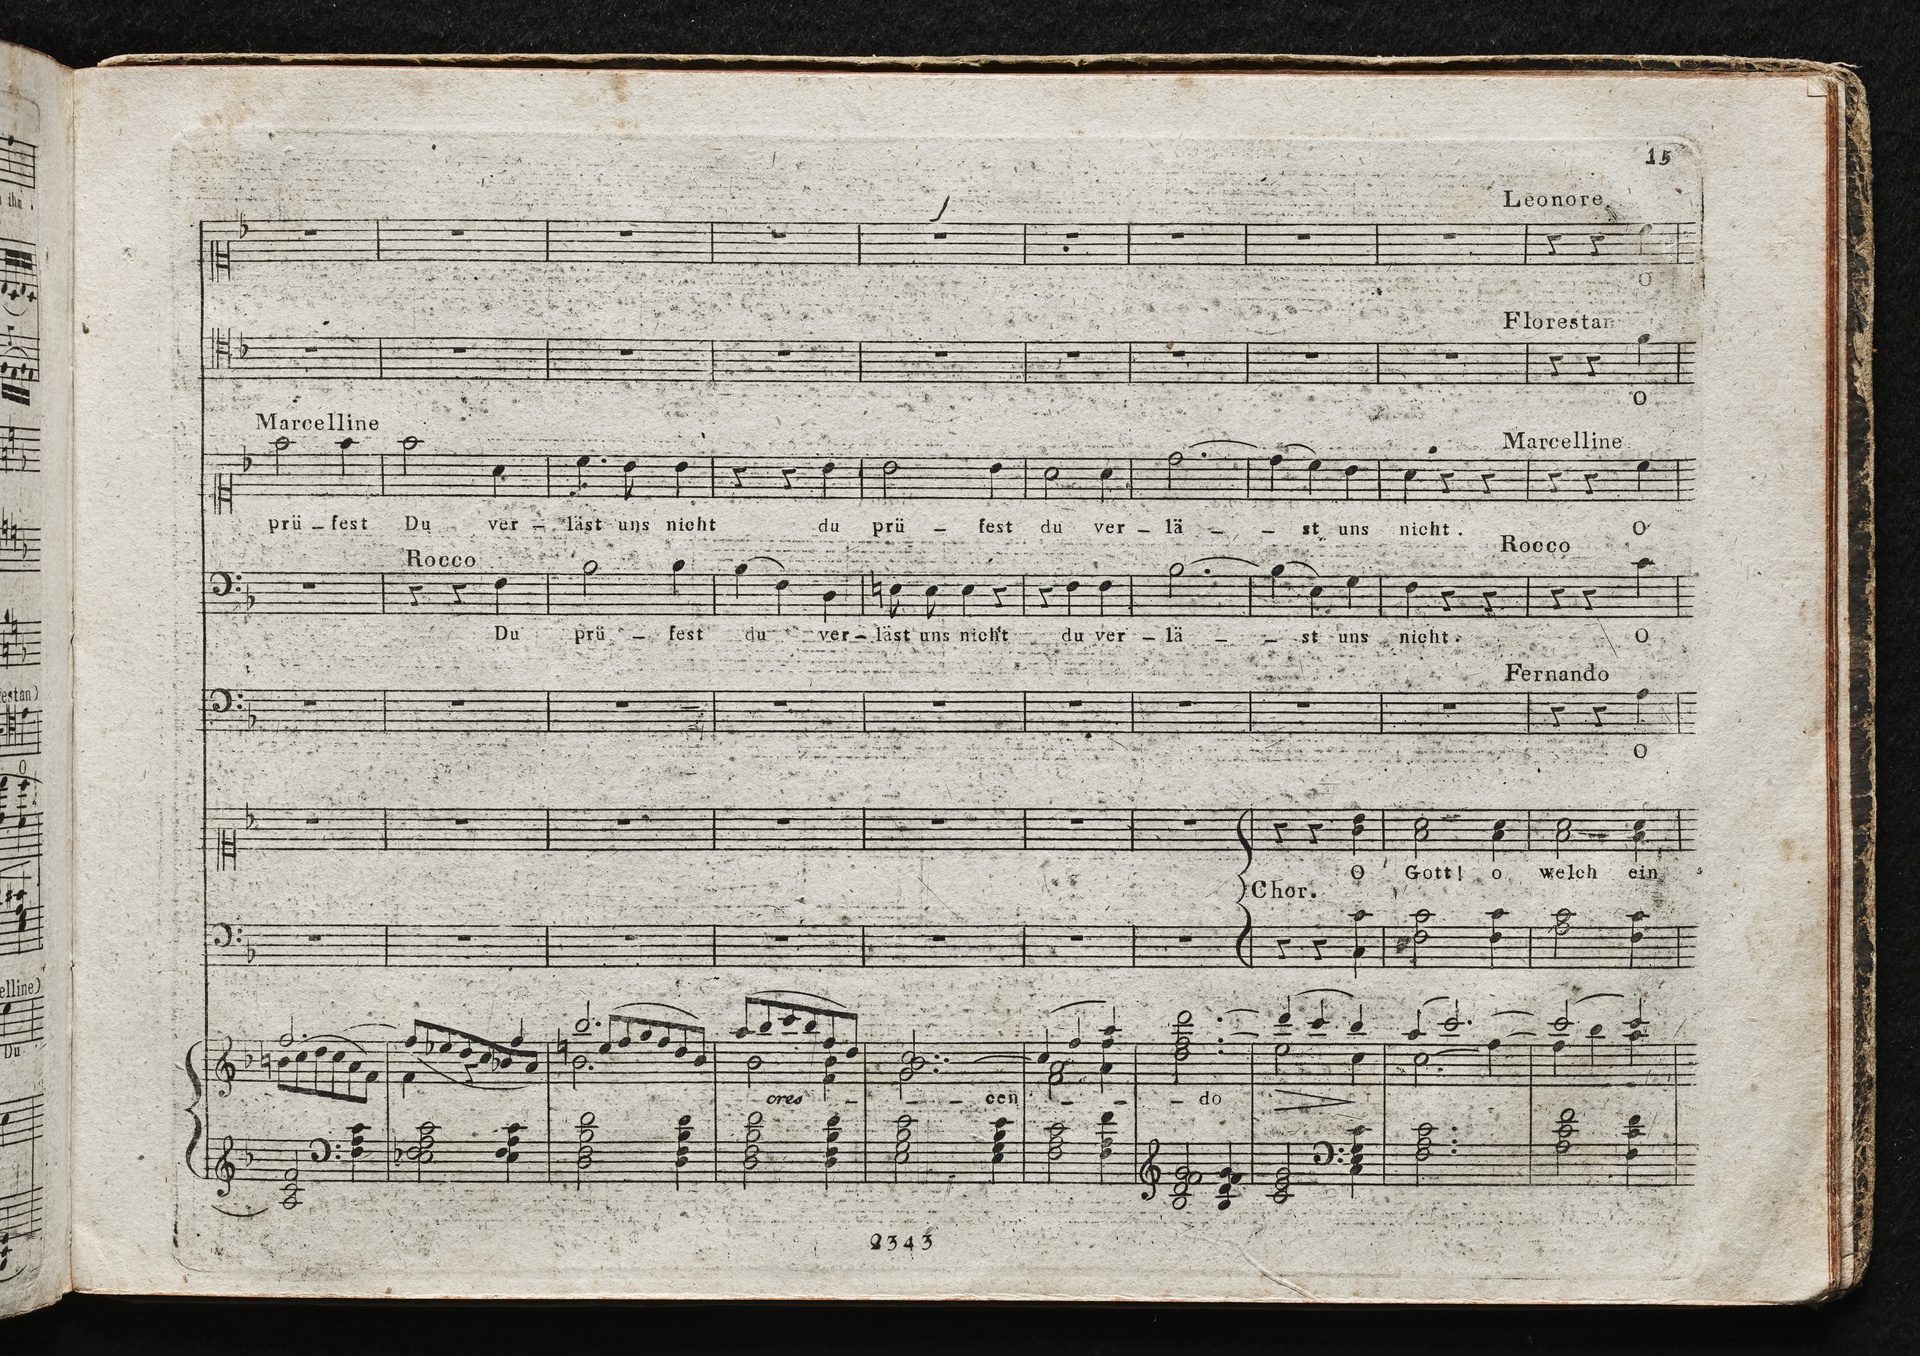 15
Leonore
O
Florestan
O
Marcelline
Marcelline
prü – fest Du ver – läst uns nicht du prü – fest du ver – lä – – st uns nicht. O
Rocco
Rocco
Du prü – fest du ver – läst uns nicht du ver – lä – – st uns nicht. O
Fernando
O
O Gott! o welch ein
Chor.
cres – – – cen – – – do
2343
ihn.
estan)
O
elline)
Du